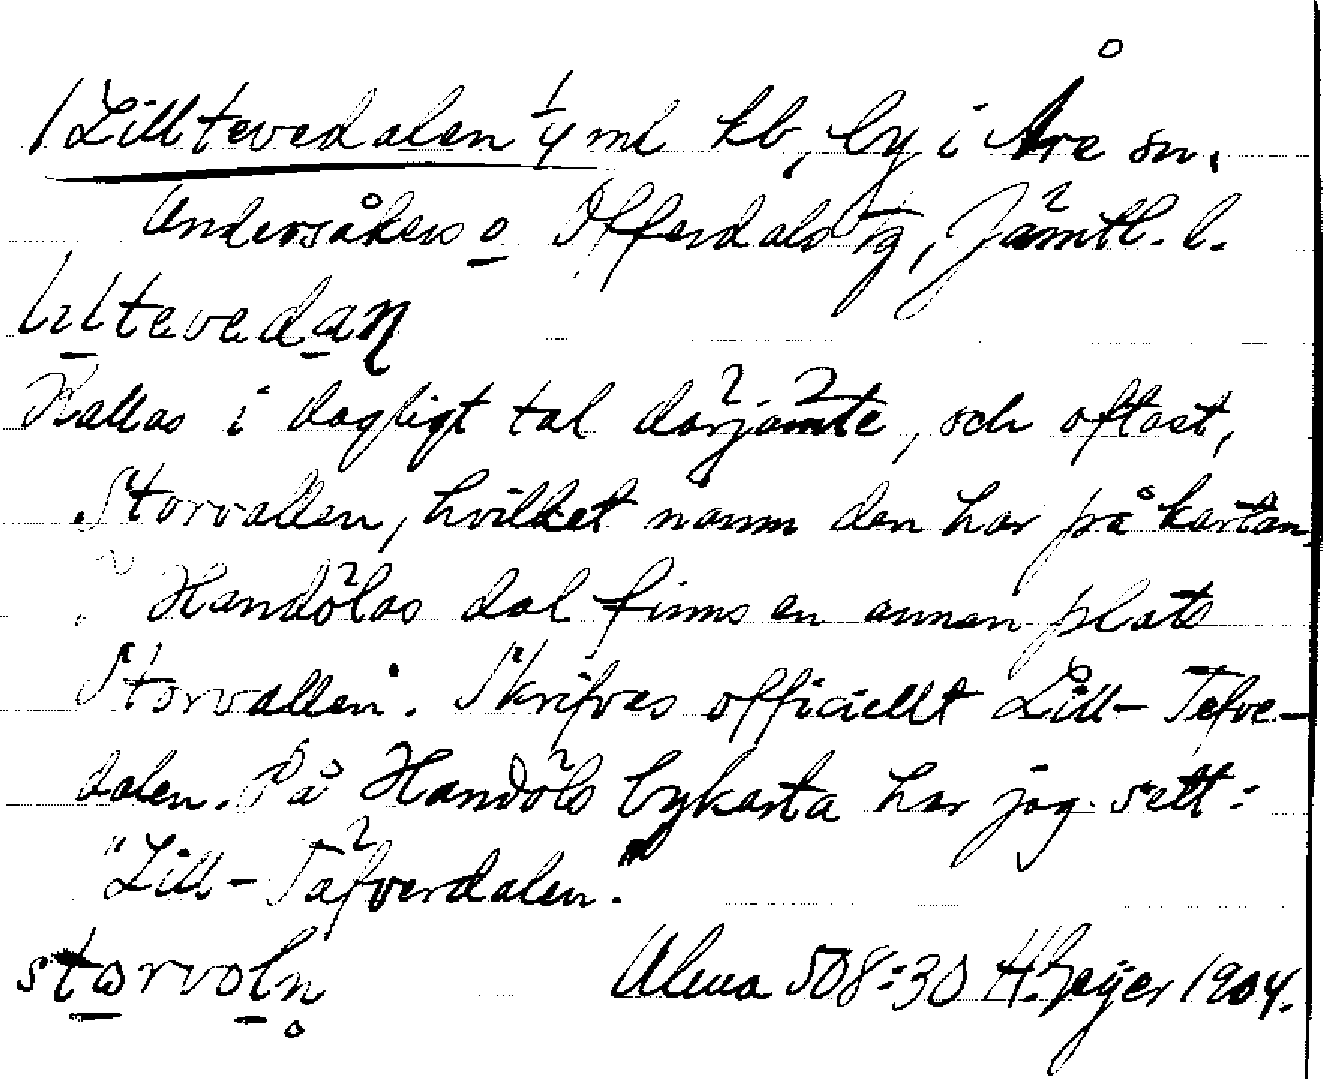 Lilltevedalen 1/4 ml hb, by i Åre sn,
Undersåkers o Offerdals tg, Jämtl. l.
liltevedan
Kallas i dagligt tal därjämte, och oftast,
Storvallen, hvilket namn den har på kartan.
I Handölas dal finns en annan plats
Storvallen. Skrifves officiellt Lill-Tefve-
dalen. På Handöls bykarta har jag sett:
"Lill-Täfverdalen."
storvoln̥
Alma 508:30 H.Geijer 1904.